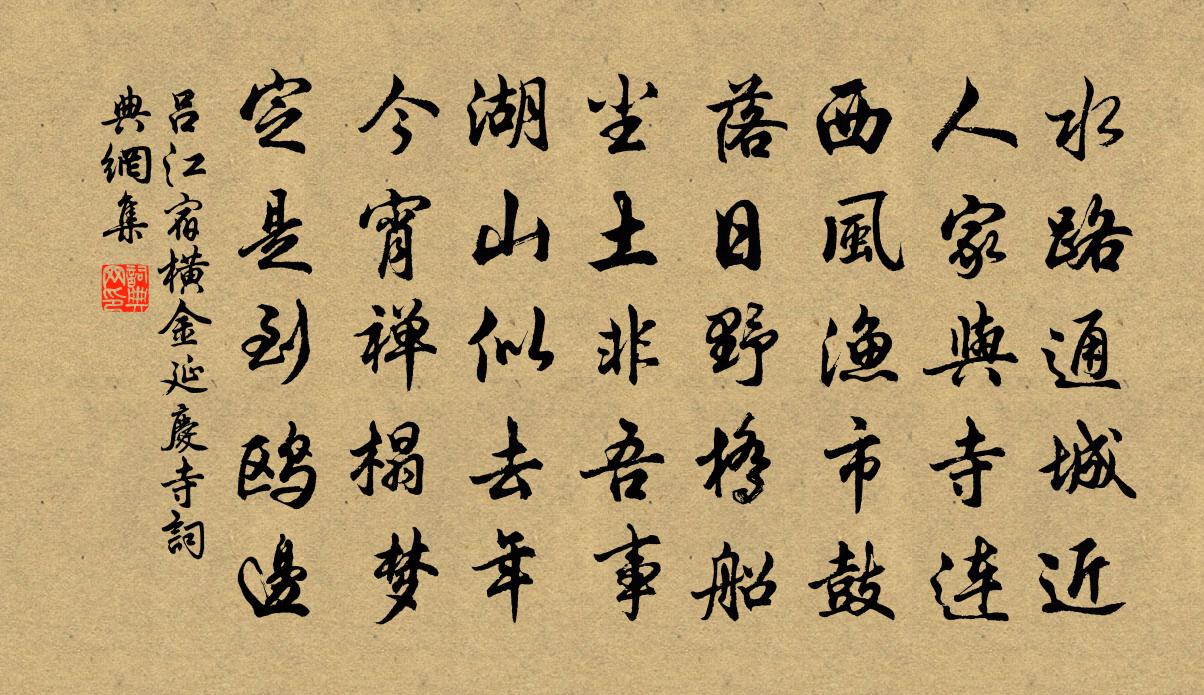 水路通城近
人家與寺連
西風漁市鼓
落日野橋船
坐土非吾事
湖山似去年
今宵禅榻梦
定是到鸥邊
吕江宿橫金延慶寺詞
典網集
詞典
网印